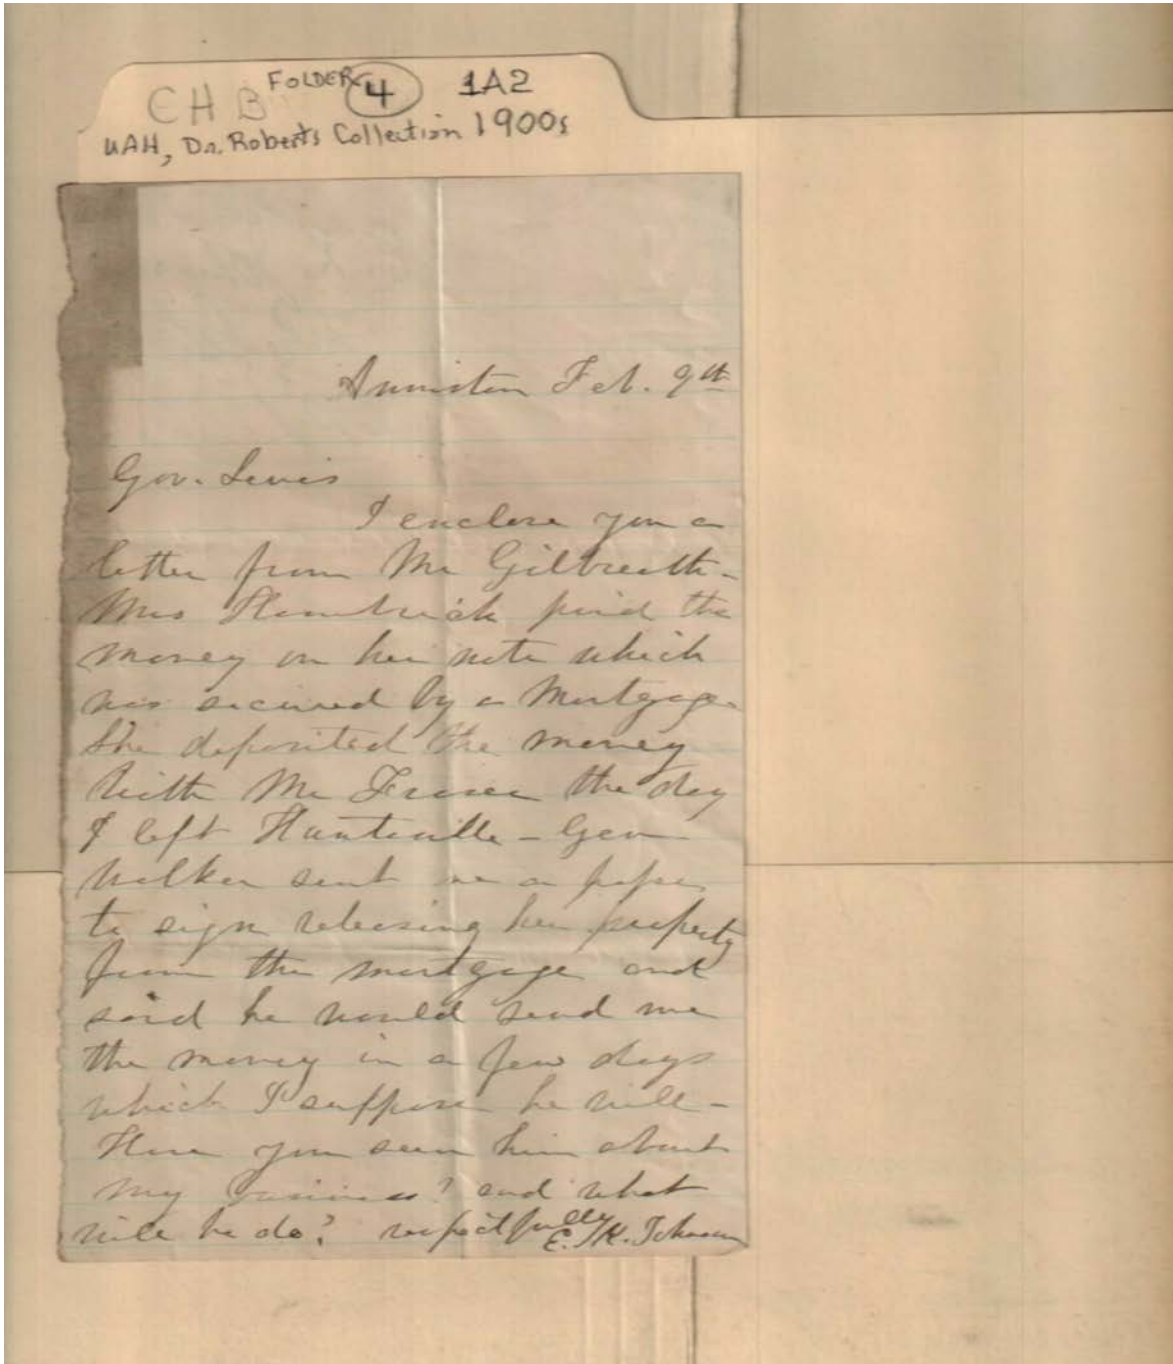 CHB FOLDER 4 1A2
UAH, Dr. Roberts Collection 1900s
Anniston Feb. 9th
Gov. Lewis
I enclose you a
letter from Mr Gilbreath -
Mrs Hambrick paid the
money on her note which
was secured by a Mortgage.
She deposited the money
with Mr the day
I left Huntsville - Gen
Walker sent me a paper
to sign releasing her property
from the mortgage and
said he would send me
the money in a few days
which I suppose he will -
Have you seen him about
my business? and what
will he do? respectfully
E. K. Johnson